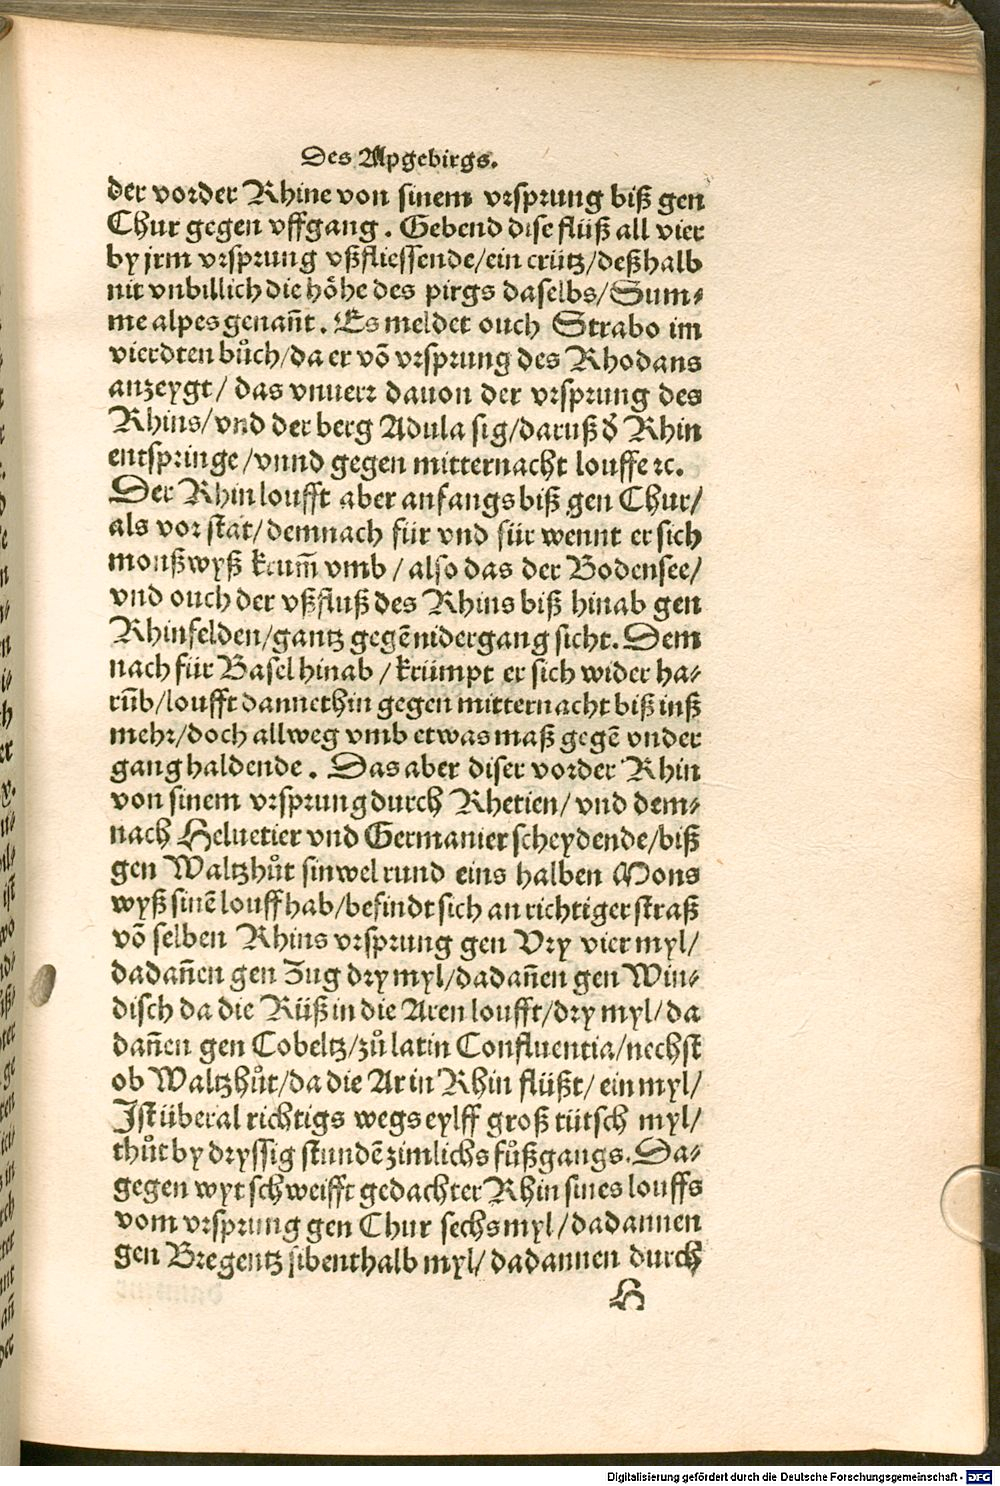 Des Alpgebirgs.
der vorder Rhine von sinem vrsprung biß gen
Chur gegen vffgang. Gebend dise flüß all vier
by jrm vrsprung vßfliessende/ein crütz/deßhalb
nit vnbillich die höhe des pirgs daselbs/Sum⸗
me alpes genañt. Es meldet ouch Strabo im
vierdten bůch/da er võ vrsprung des Rhodans
anzeygt/ das vnuerr dauon der vrsprung des
Rhins/vnd der berg Adula sig/daruß d̕ Rhin
entspringe/vnnd gegen mitternacht louffe ꝛc.
Der Rhin loufft aber anfangs biß gen Chur/
als vor stat/demnach für vnd für wennt er sich
monßwyß krum̃ vmb/also das der Bodensee/
vnd ouch der vßfluß des Rhins biß hinab gen
Rhinfelden/gantz gegẽ nidergang sicht. Dem
nach für Basel hinab/krümpt er sich wider ha⸗
rũb/loufft dannethin gegen mitternacht biß inß
mehr/doch allweg vmb etwas maß gegẽ vnder
gang haldende. Das aber diser vorder Rhin
von sinem vrsprung durch Rhetien/vnd dem⸗
nach Heluetier vnd Germanier scheydende/biß
gen Waltzhůt sinwel rund eins halben Mons
wyß sinẽ louff hab/befindt sich an richtiger straß
võ selben Rhins vrsprung gen Vry vier myl/
dadañen gen Zug dry myl/dadañen gen Win⸗
disch da die Rüß in die Aren loufft/dry myl/da
dañen gen Cobeltz/zů latin Confluentia/nechst
ob Waltzhůt/da die Ar in Rhin flüßt/ein myl/
Ist überal richtigs wegs eylff groß tütsch myl/
thůt by dryssig stundẽ zimlichs fůßgangs. Da⸗
gegen wyt schweifft gedachter Rhin sines louffs
vom vrsprung gen Chur sechs myl/dadannen
gen Bregentz sibenthalb myl/dadannen durch
H
Digitalisierung gefördert durch die Deutsche Forschungsgemeinschaft - DFG